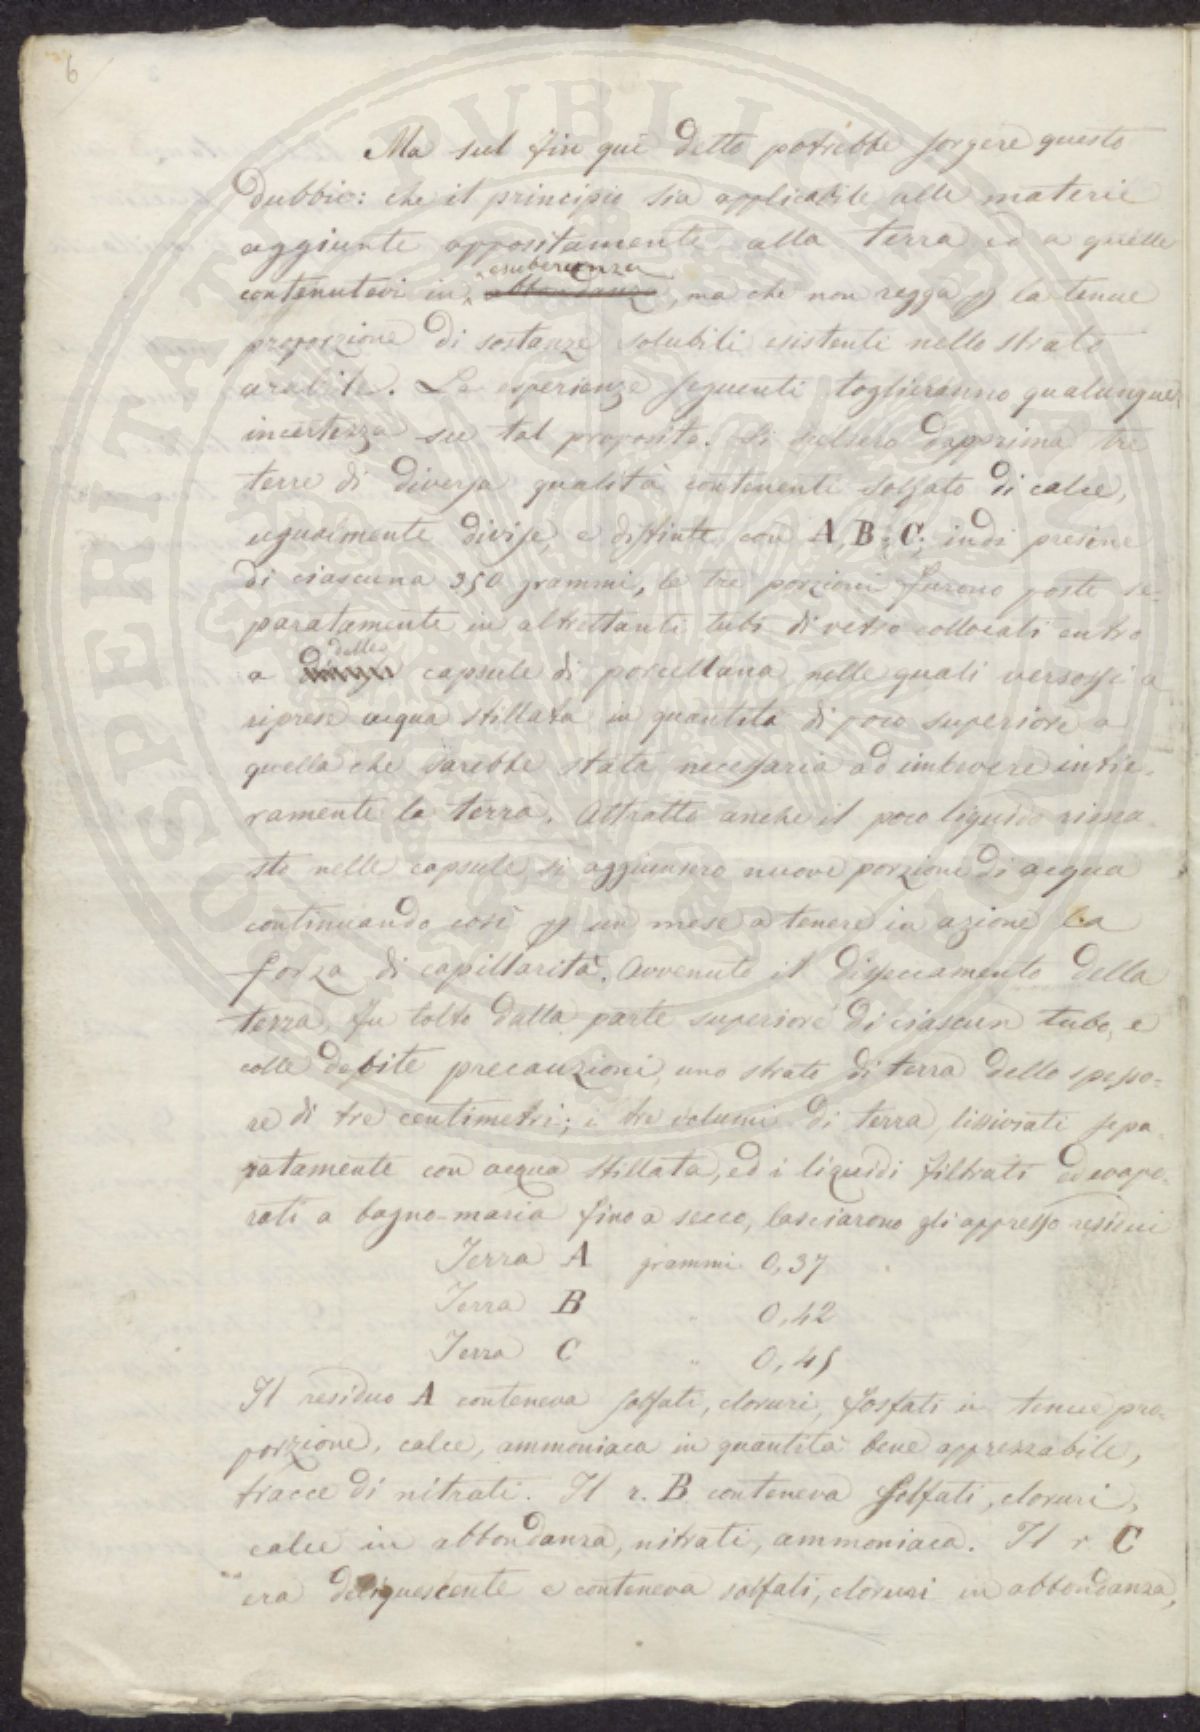 6
Ma sul fin quì detto potrebbe sorgere questo
dubbio: che il principio sia applicabile alle materie
aggiunte appositamente alla terra ed a quelle
esuberanza
contenutevi in abbondanza, ma che non regga p la tenue
proporzione di sostanze solubili esistenti nello strato
arabile. Le esperienze seguenti toglieranno qualunque
incertezza su tal proposito. Si scelsero dapprima tre
terre di diversa qualità contenenti solfato di calce,
egualmente divise, e distinte con A, B, C; indi presine
di ciascuna 350 grammi, le tre porzioni furono poste se-
paratamente in altrettanti tubi di vetro collocati entro
delle
a capsule di porcellana, nelle quali versossi a
riprese acqua stillata in quantità di poco superiore a
quella che sarebbe stata necessaria ad imbevere intie-
ramente la terra. Attratto anche il poco liquido rima-
sto nelle capsule, si aggiunsero nuove porzioni di acqua
continuando così p un mese a tenere in azione la
forza di capillarità. Avvenuto il disseccamento della
terra, fu tolto dalla parte superiore di ciascun tubo, e
colle debite precauzioni, uno strato di terra dello spesso-
re di tre centimetri; i tre volumi di terra, lisciviati sepa-
ratamente con acqua stillata, ed i liquidi filtrati ed evapo-
rati a bagno-maria fino a secco, lasciarono gli appresso residui
Terra A grammi 0,37
Terra B " 0,42
Terra C " 0,45
Il residuo A conteneva solfati, cloruri, fosfati in tenue pro-
porzione, calce, ammoniaca in quantità bene apprezzabile,
tracce di nitrati. Il r. B conteneva solfati, cloruri,
calce in abbondanza, nitrati, ammoniaca. Il r. C
era deliquescente e conteneva solfati, cloruri in abbondanza,
PROSPERITATI PUBLICAE AUGENDAE